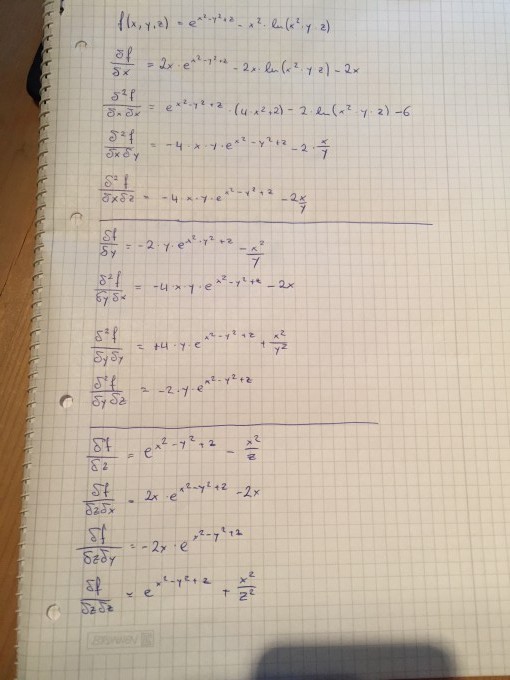 f(x,y,z) = e^(x²-y²+z) - x² · ln(x² · y · z)
δf/δx = 2x · e^(x²-y²+z) - 2x · ln(x² · y · z) - 2x
δ²f/δxδx = e^(x²-y²+z) · (4·x²+2) - 2 · ln(x² · y · z) - 6
δ²f/δxδy = -4 · x · y · e^(x²-y²+z) - 2 · x/y
δ²f/δxδz = -4 · x · y · e^(x²-y²+z) - 2x/y
δf/δy = -2 · y · e^(x²-y²+z) - x²/y
δ²f/δyδx = -4 x · y · e^(x²-y²+z) - 2x
δ²f/δyδy = +4 · y · e^(x²-y²+z) + x²/y²
δ²f/δyδz = -2 · y · e^(x²-y²+z)
δf/δz = e^(x²-y²+z) - x²/z
δf/δzδx = 2x · e^(x²-y²+z) - 2x
δf/δzδy = -2x · e^(x²-y²+z)
δf/δzδz = e^(x²-y²+z) + x²/z²